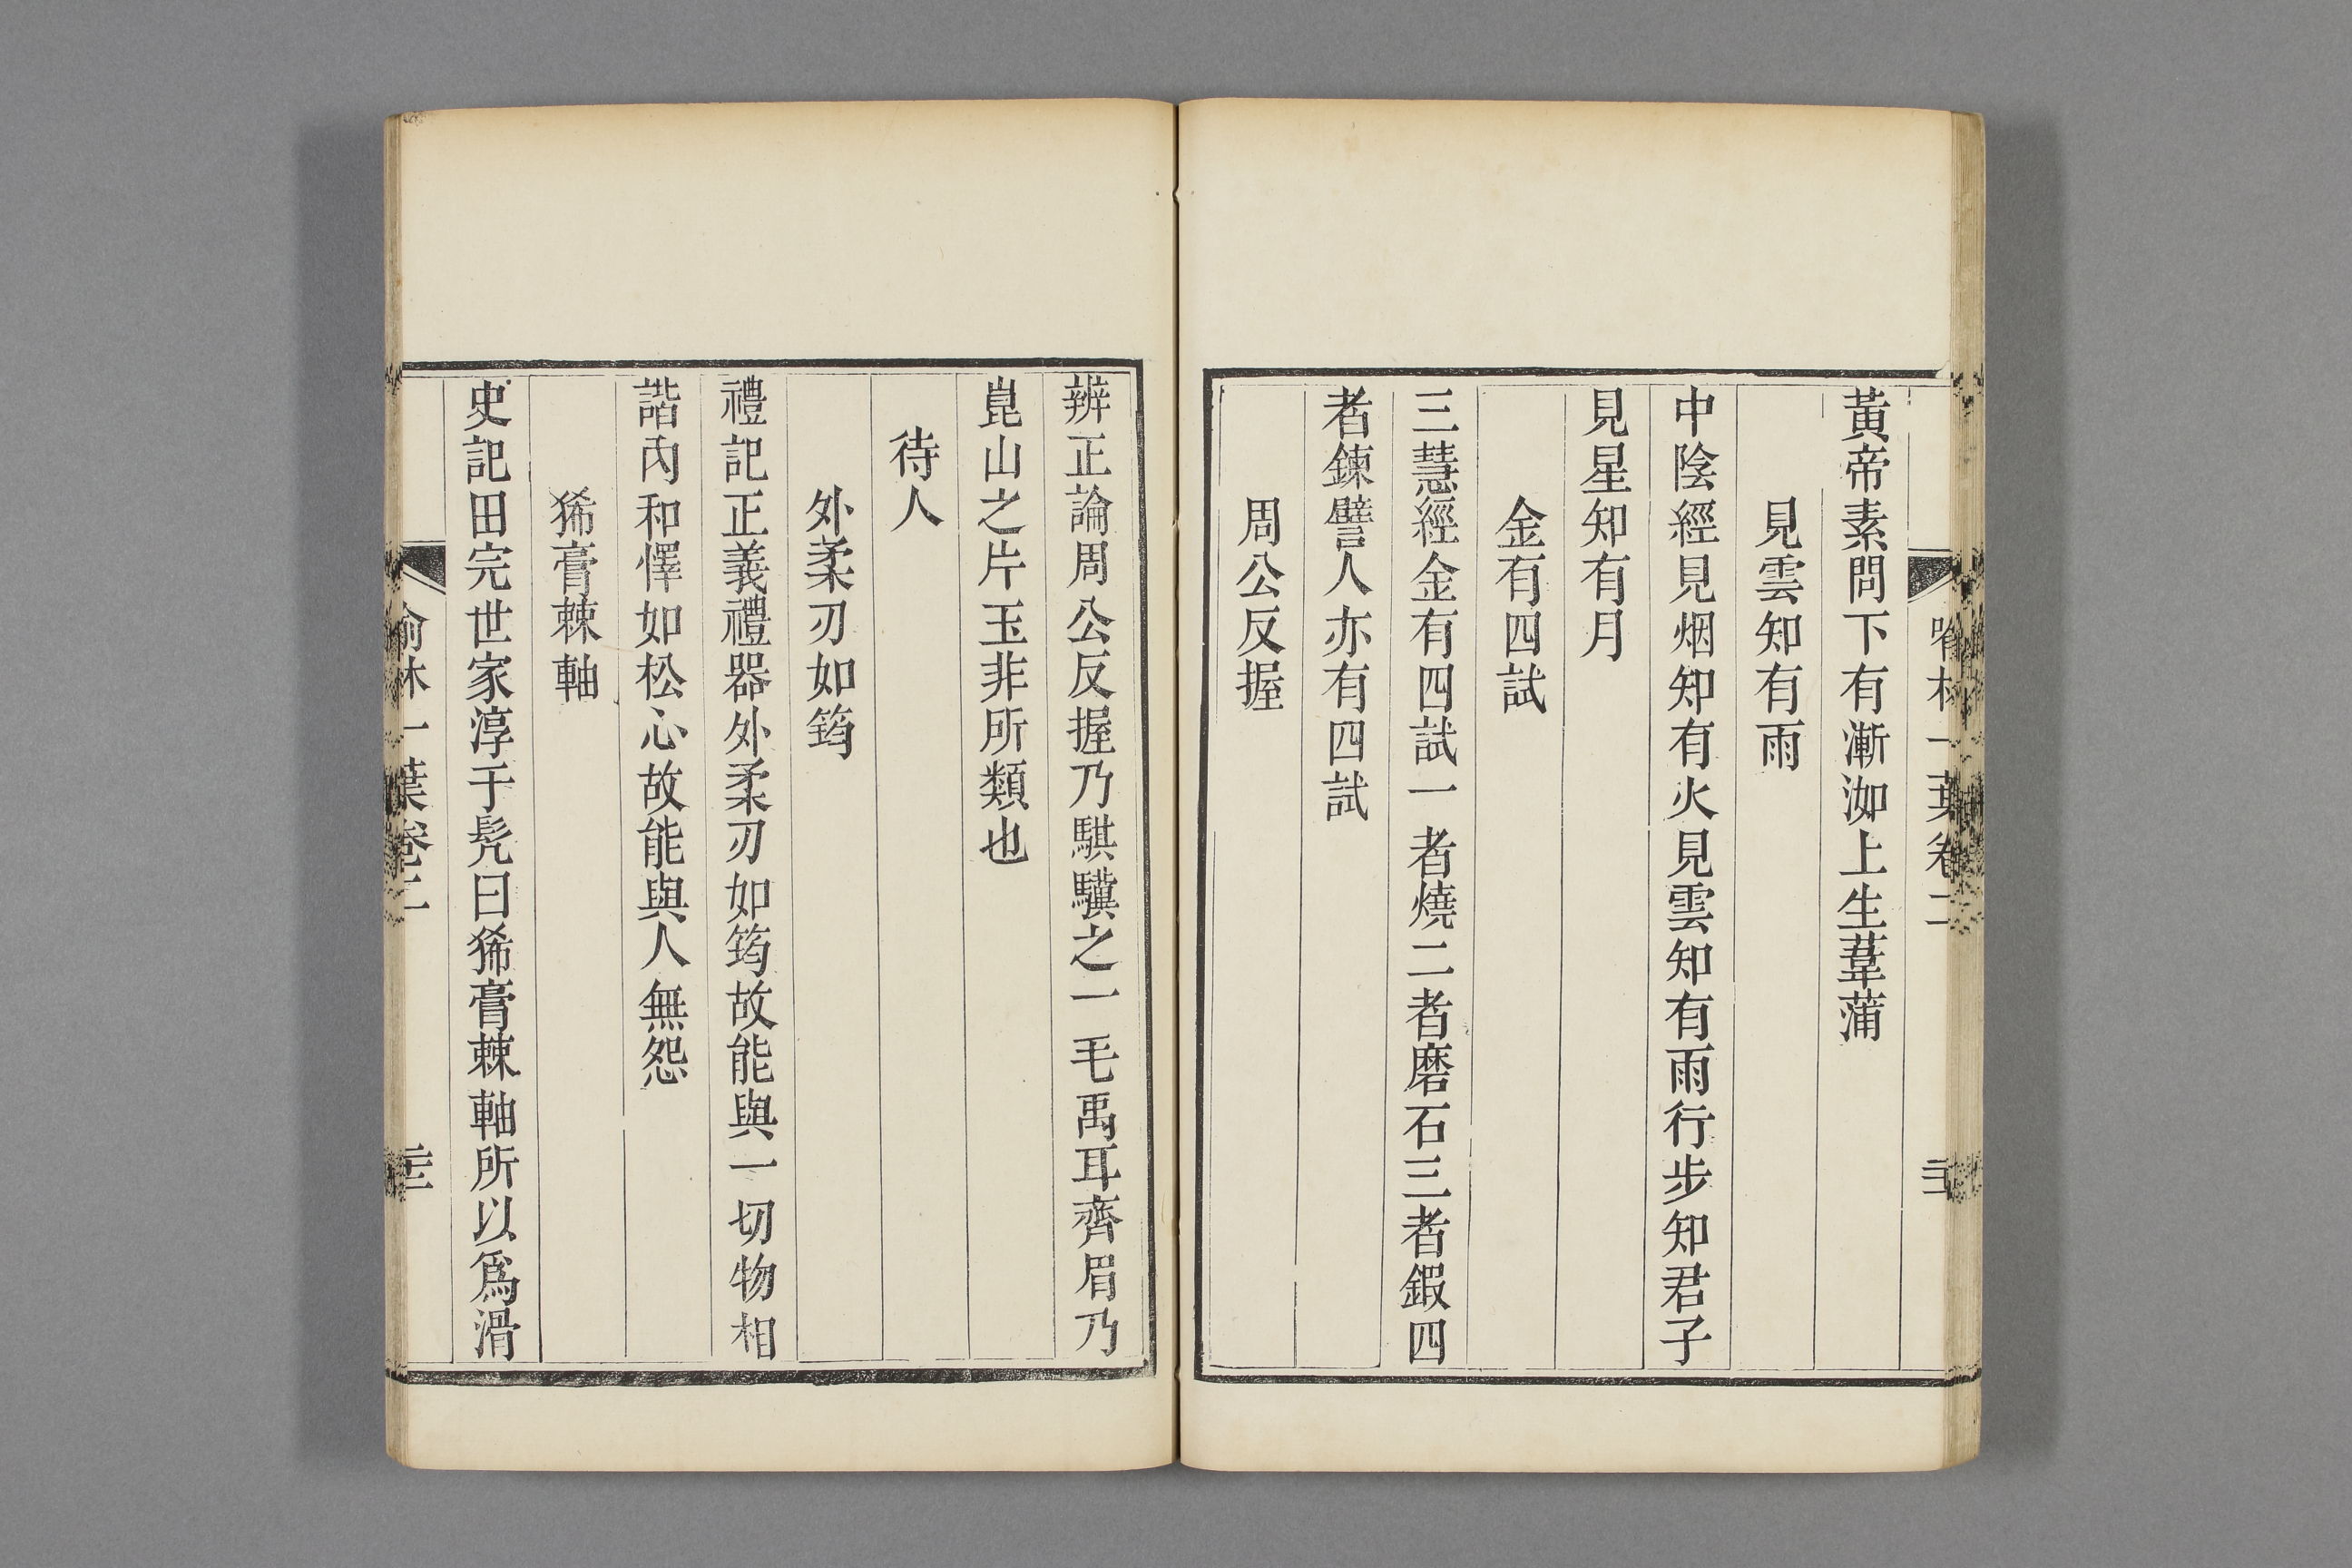 喻林一葉卷二
黃帝素問下有漸洳上生葦蒲
見雲知有雨
中陰經見烟知有火見雲知有雨行步知君子
見星知有月
金有四試
三慧經金有四試一者燒二者磨石三者鍜四
者鍊譬人亦有四試
周公反握
辨正論周公反握乃騏驥之一毛禹耳齊眉乃
崑山之片玉非所類也
待人
外柔刃如筠
禮記正義禮器外柔刃如筠故能與一切物相
諧內和懌如松心故能與人無怨
豨膏棘軸
史記田完世家淳于髠曰豨膏棘軸所以爲滑
喻林一葉卷二